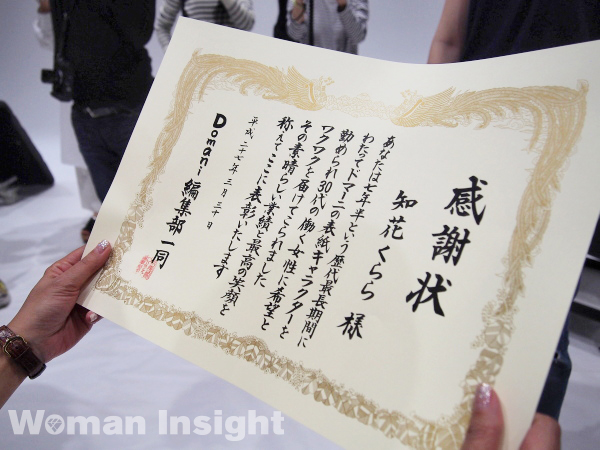 感謝状
知花 くらら 様
あなたは七年半という歴代最長期間に
わたってドマーニの表紙キャラクターを
勤められ30代の働く女性に希望と
ワクワクを届けてこられました
その素晴らしい業績と最高の笑顔を
称えてここに表彰いたします
平成二十七年三月三十日
Domani 編集部一同
Woman Insight